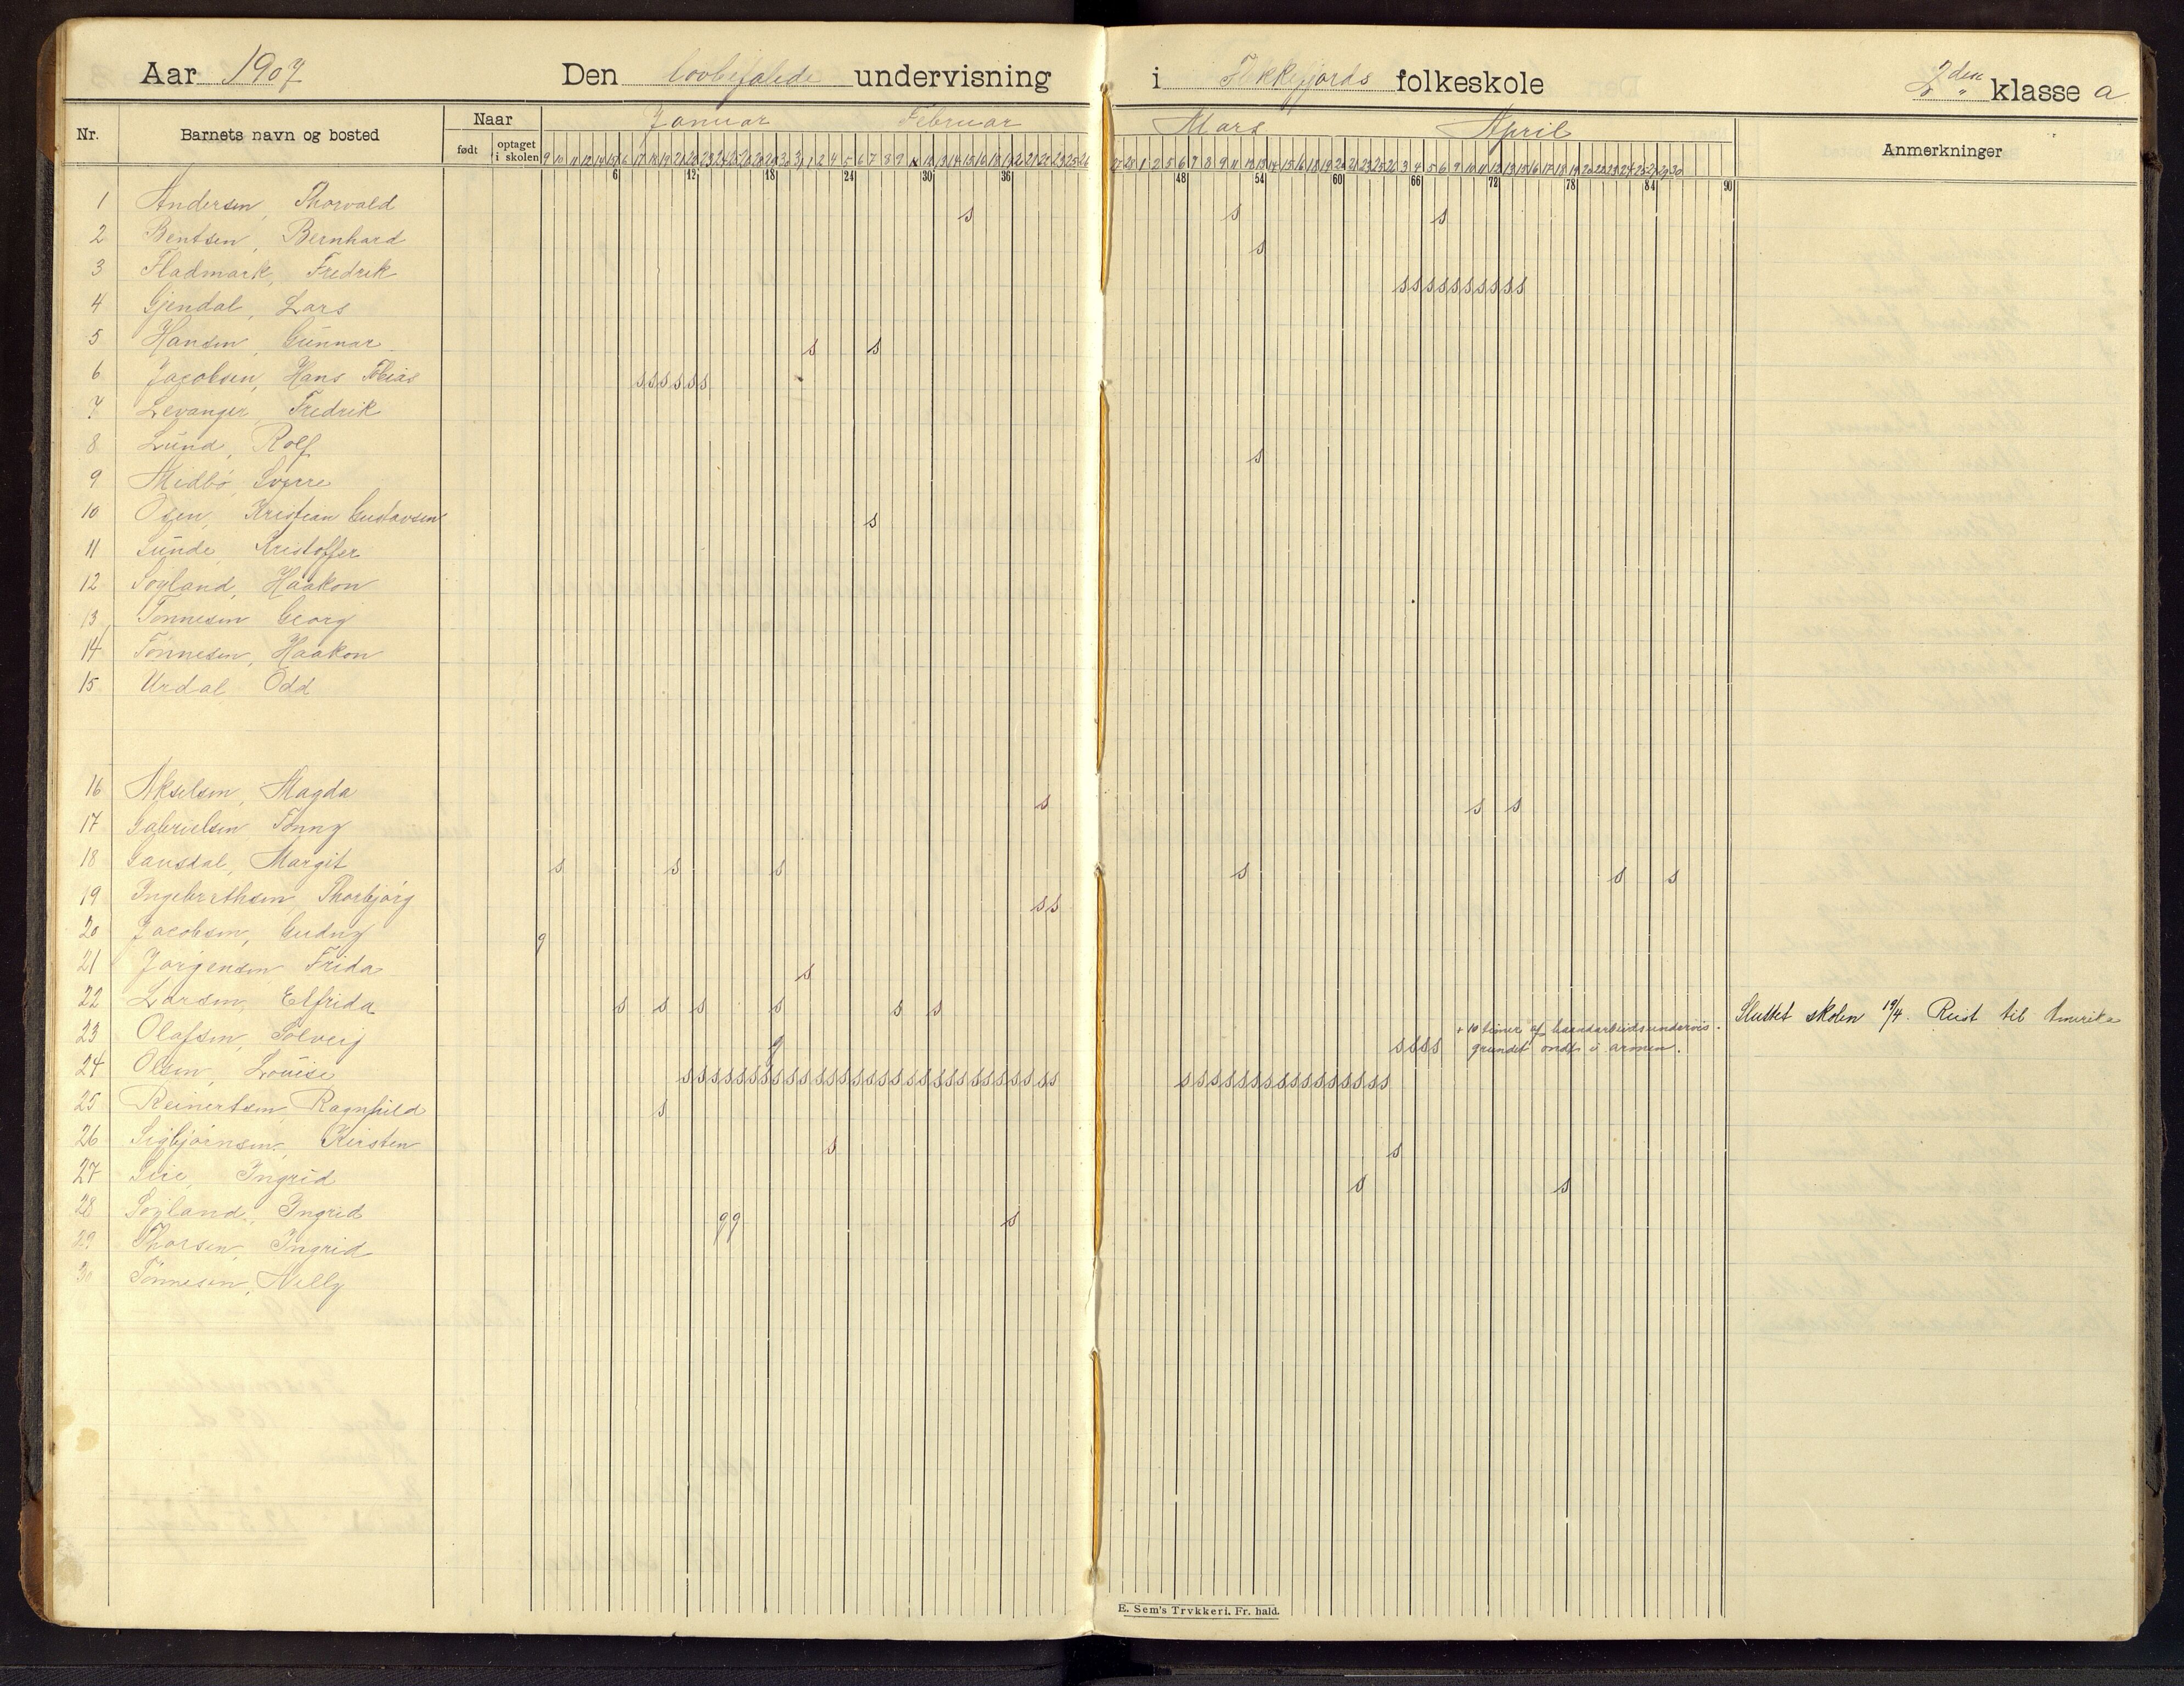 Aar 1907 Den lovbefalede undervisning i Flekkefjords folkeskole 2den klasse a
Nr. Barnets navn og bosted Naar født optaget i skolen Januar Februar Mars April Anmerkninger
6 12 18 24 30 36 48 54 60 66 72 78 84 90
1 Andersen, Thorvald s s s
2 Bentsen, Bernhard s
3 Fladmark, Fredrik s s s s s s s s s s s
4 Gjendal, Lars
5 Hansen, Gunnar s s
6 Jacobsen, Hans Tobias s s s s s s
7 Levanger Fredrik
8 Lund, Rolf s
9 Midbø, Sverre
10 Osen, Kristian Gustavsen s
11 Sunde, Kristoffer
12 Søyland, Haakon
13 Tønnesen Georg
14 Tønnesen, Haakon
15 Urdal Odd
16 Akselsen, Magda s s s
17 Gabrielsen Tonny
18 Gausdal, Margit s s s s s s
19 Ingebrethsen, Thorbjørg s s
20 Jacobsen, Gudny g
21 Jørgensen Frida s
22 Larsen, Elfrida s s s s s s Sluttet skolen 19/4. Reist til Amerika
23 Olafsen, Solveig g s s s s + 10 timer af haandarbeidsundervis. grundet ondt i armen.
24 Olsen, Louise
25 Reinertsen, Ragnhild s
26 Sigbjørnsen, Kirsten s s
27 Seie, Ingrid s s
28 Søyland, Ingrid g g s
29 Thorsen, Ingrid
30 Tønnesen, Nelly
E. Sem's Trykkeri. Fr. hald.